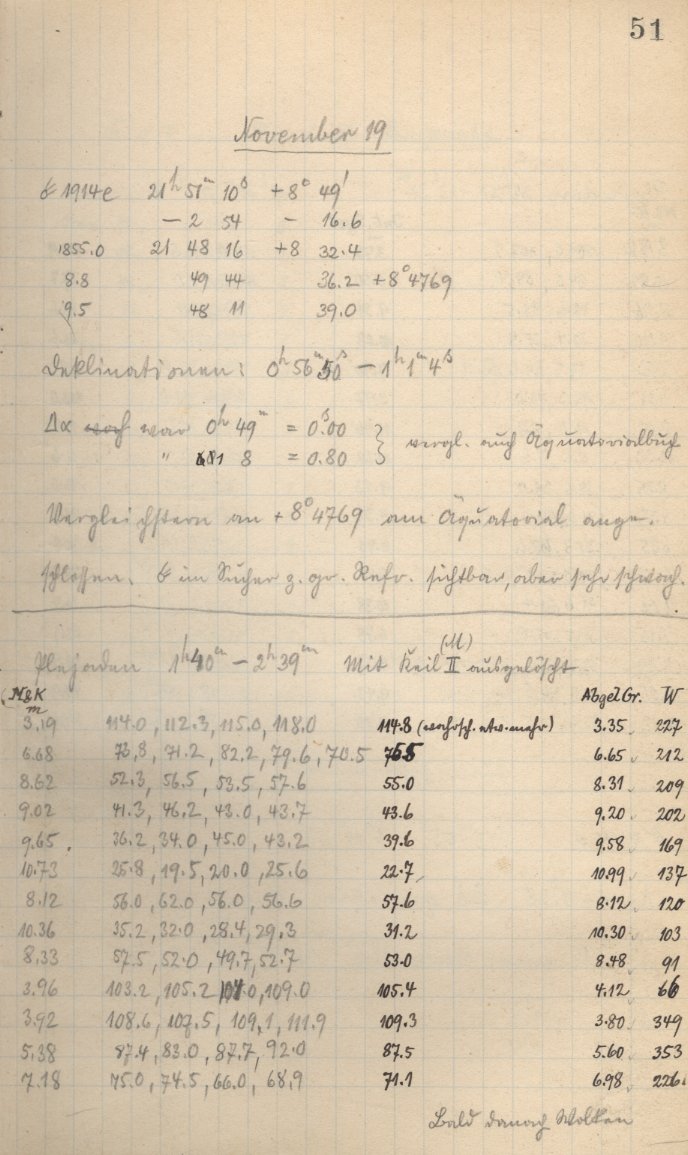 51
November 19
☄ 1914e 21h 51m 10s +8° 49'
— 2 54 — 16.6
1855.0 21 48 16 +8 32.4
8.8 49 44 36.2 +8°4769
9.5 48 11 39.0
Deklinationen: 0h 56m 50s — 1h 1m 4s
Δα noch war 0h 49m = 0s.00 } vergl. auch Äquatorialbuch
" 1 8 = 0.80
Vergleichstern an +8°4769 am Äquatorial ange-
schlossen. ☄ im Sucher z. gr. Refr. sichtbar, aber sehr schwach.
Plejaden 1h40m — 2h39m Mit Keil II (M) ausgelöscht
M&K Abgel Gr. W
m
3.19 114.0, 112.3, 115.0, 118.0 114.8 (wahrsch. etw. mehr) 3.35 227
6.68 73,8, 71.2, 82.2, 79.6, 70.5 75.5 6.65 212
8.62 52.3, 56.5, 53.5, 57.6 55.0 8.31 209
9.02 41.3, 46.2, 43.0, 43.7 43.6 9.20 202
9.65 36.2, 34.0, 45.0, 43.2 39.6 9.58 169
10.73 25.8, 19.5, 20.0, 25.6 22.7 10.99 137
8.12 56.0, 62.0, 56.0, 56.6 57.6 8.12 120
10.36 35.2, 32.0, 28.4, 29.3 31.2 10.30 103
8.33 57.5, 52.0, 49.7, 52.7 53.0 8.48 91
3.96 103.2, 105.2 104.0, 109.0 105.4 4.12 66
3.92 108.6, 107.5, 109,1, 111.9 109.3 3.80 349
5.38 87.4, 83.0, 87.7, 92.0 87.5 5.60 353
7.18 75.0, 74.5, 66.0, 68.9 71.1 6.98 226
Bald danach Wolken